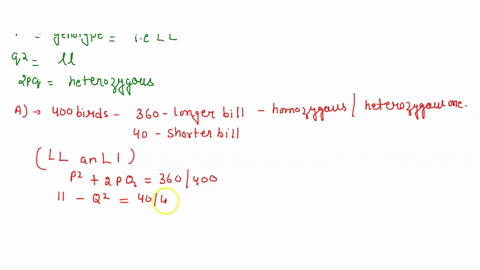 genotype = i.e LL
q2 = ll
2pq = heterozygous
A) → 400 birds - 360 - longer bill - homozygous / heterozygous one.
40 - shorter bill
(LL an L l)
P² + 2PQ = 360/400
ll - Q² = 40/4